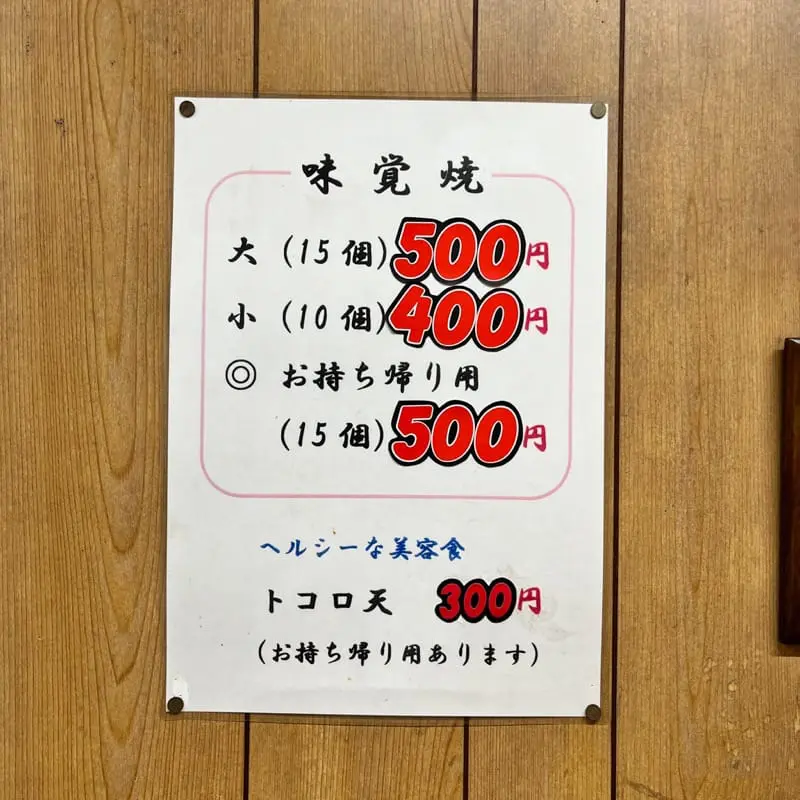 味覚焼
大 (15個) 500円
小 (10個) 400円
◎ お持ち帰り用
(15個) 500円
ヘルシーな美容食
トコロ天 300円
(お持ち帰り用あります)